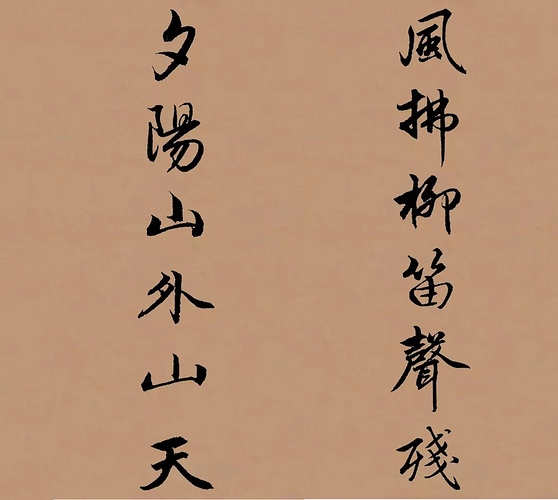 風拂柳笛聲殘
夕陽山外山天